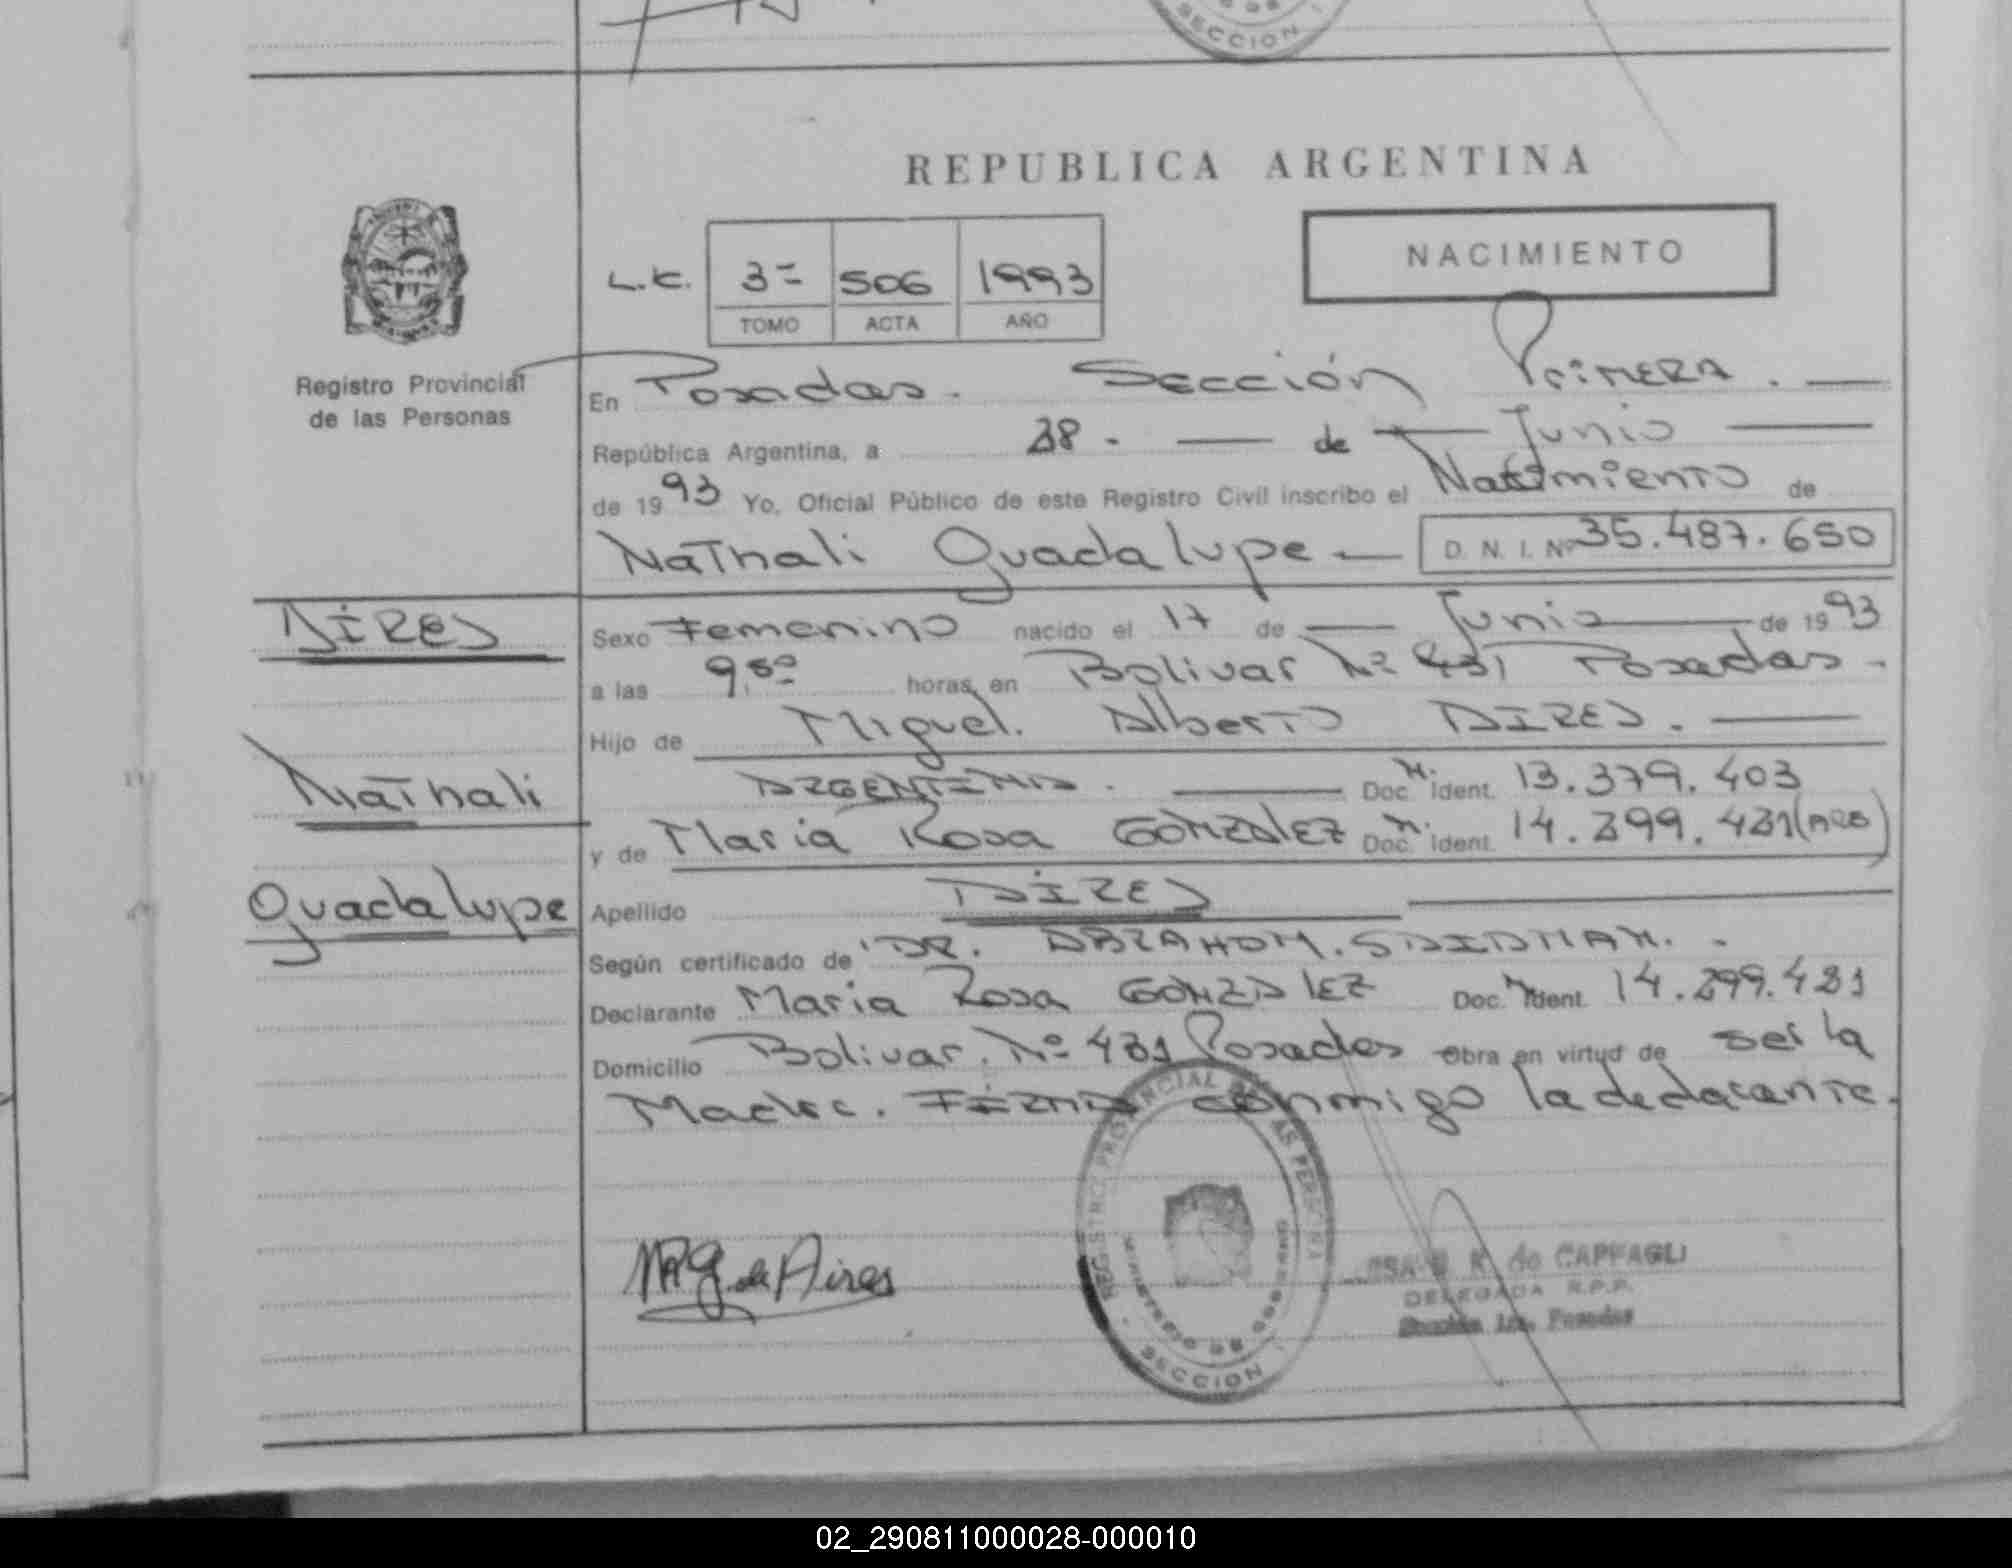 SECCION I
REPUBLICA ARGENTINA
NACIMIENTO
L.C. 3= 506 1993
TOMO ACTA AÑO
Registro Provincial
de las Personas
En Posadas. Sección Primera.
República Argentina, a 28. de Junio
de 1993 Yo, Oficial Público de este Registro Civil inscribo el Nacimiento de
Nathali Guadalupe D. N. I. Nº 35.487.650
AIRES
Sexo Femenino nacido el 17 de Junio de 1993
a las 9,50 horas, en Bolivar Nº 431 Posadas.
Hijo de Miguel. Alberto AIRES.
Nathali
ARGENTINA. Doc. N. Ident. 13.379.403
y de Maria Rosa GONZALEZ Doc. N. Ident. 14.299.431 (ARG)
Guadalupe
Apellido AIRES
Según certificado de DR. ABRAHAM. SAIDMAN.
Declarante Maria Rosa GONZALEZ Doc. N. Ident. 14.299.431
Domicilio Bolivar. Nº 431 Posadas Obra en virtud de ser la
Madre. FIRMA conmigo la declarante.
REGISTRO PROVINCIAL DE LAS PERSONA
MINISTERIO DE GOBIERNO
SECCION I
MRG. de Aires
de CAPFAGLI
DELEGADA R.P.P.
Sección 1ra. Posadas
02_290811000028-000010